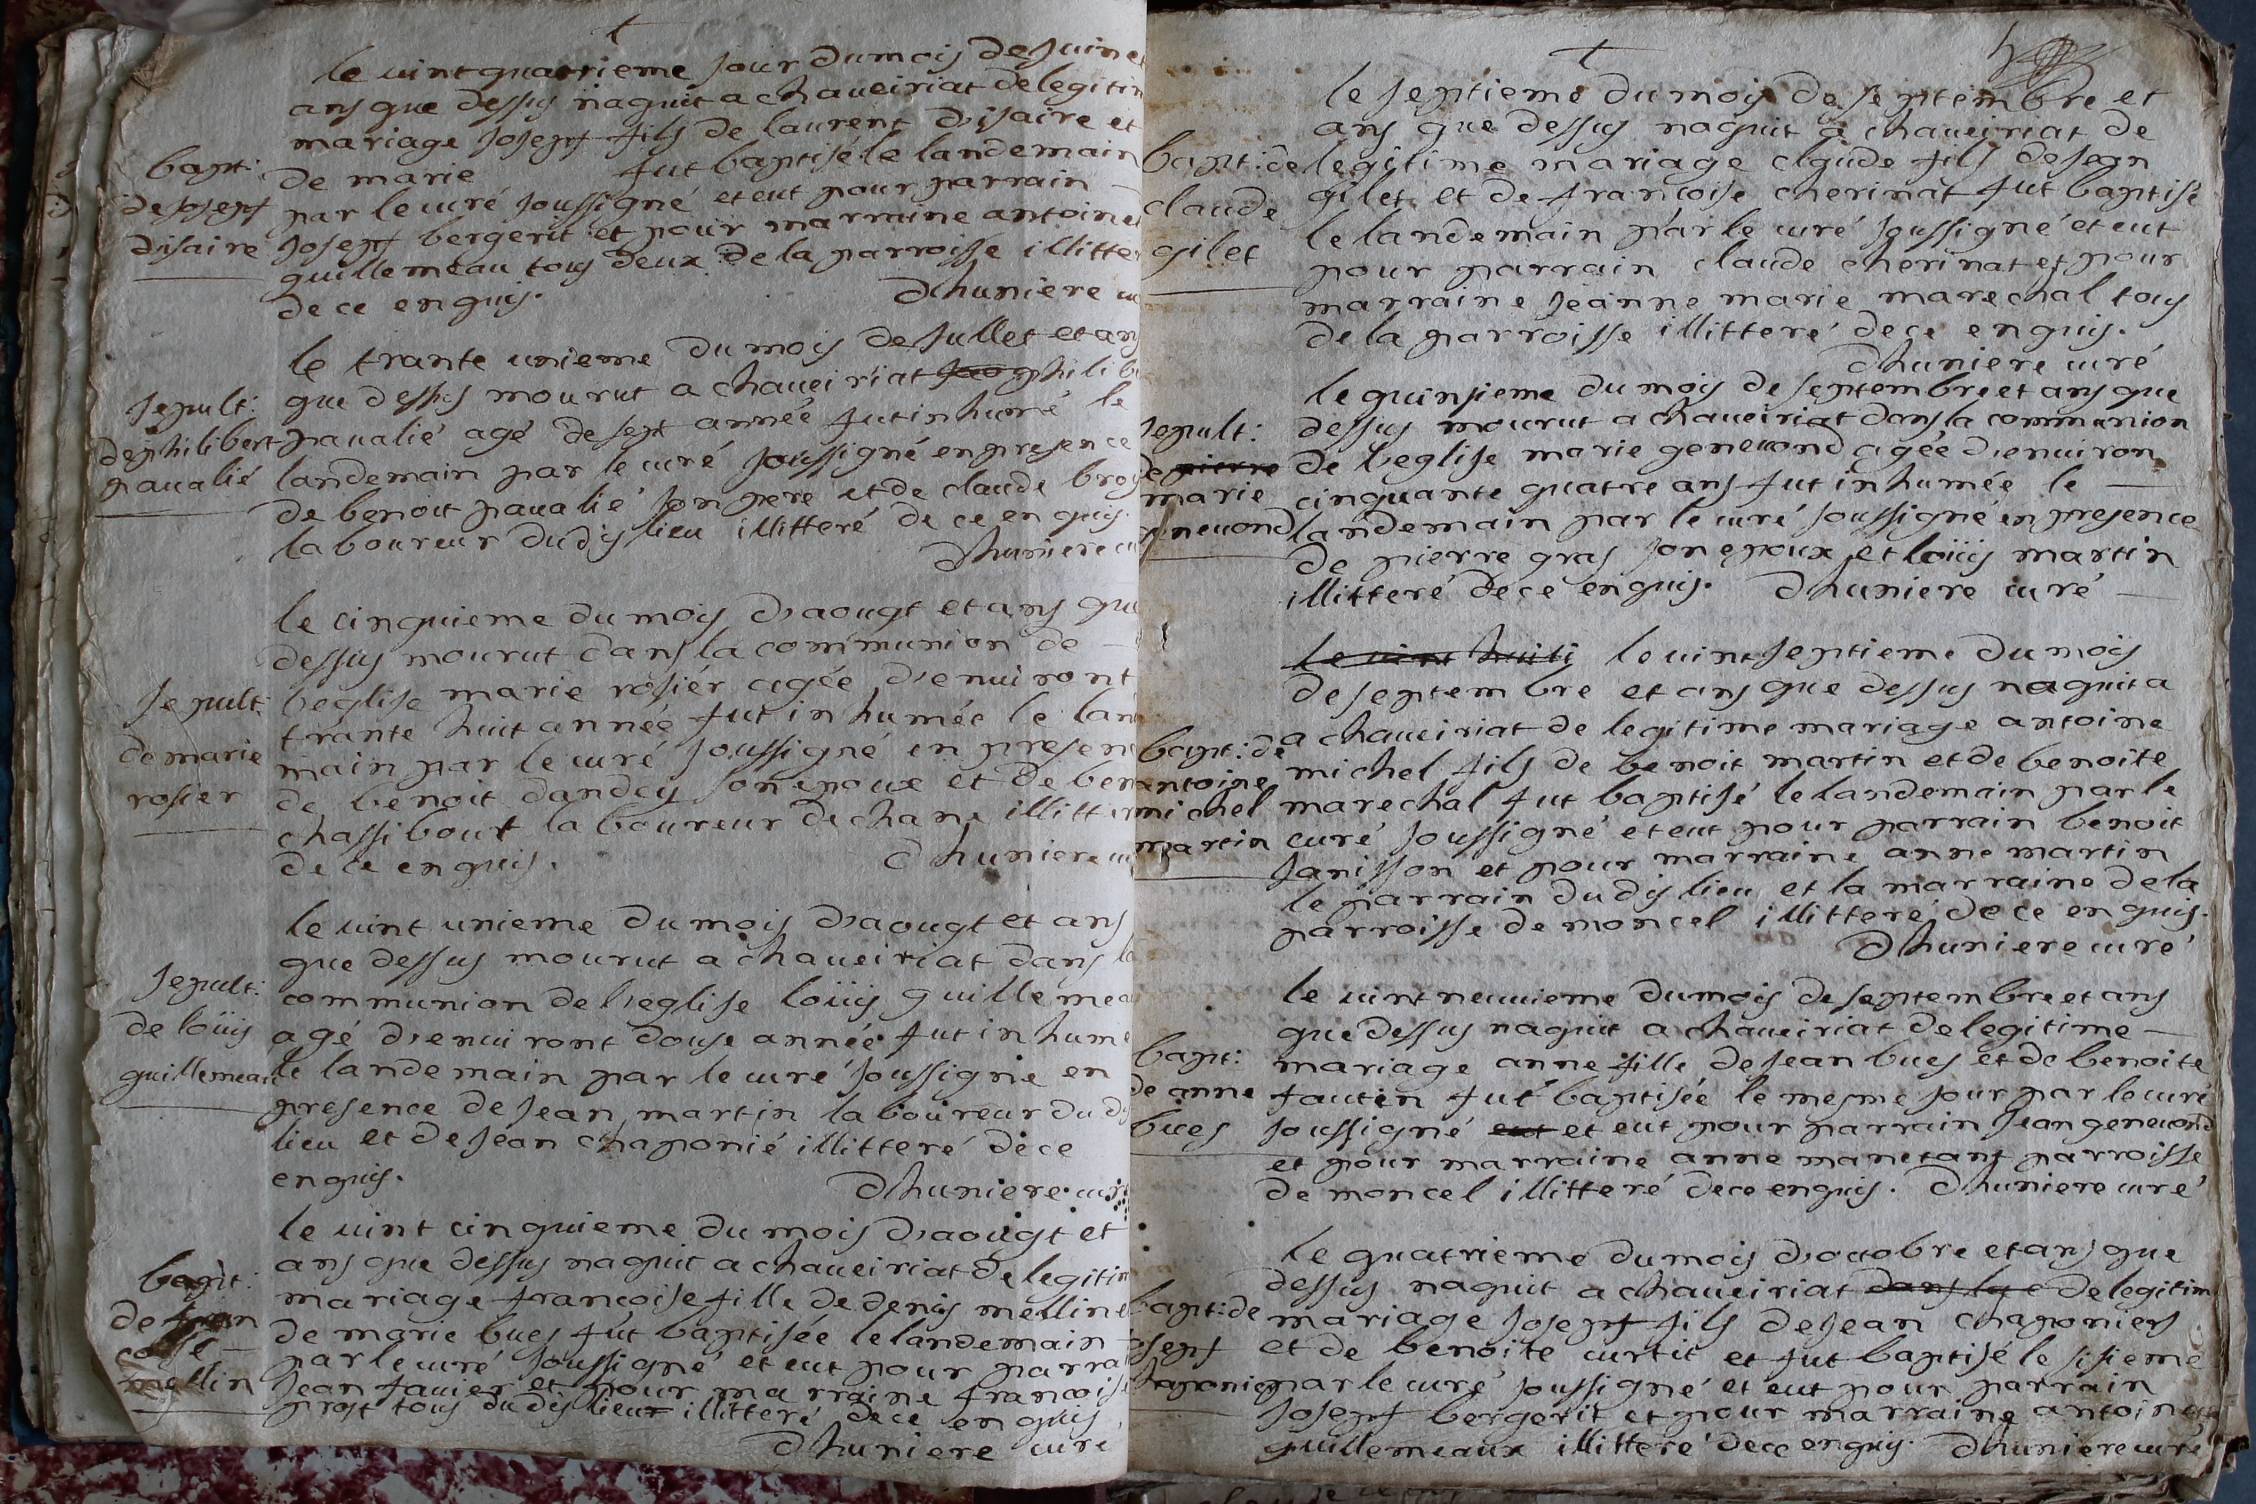 le vint quatrieme jour du mois de juin et
ans que dessus naquit a chaveiriat de legitim
mariage josept fils de laurent disaire et
bapt: de marie fut baptisé le landemain
de josept par le curé soussigné et eut pour parrain
disaire josept bergerit et pour marraine antoinet
guillemeau tous deux de la parroisse illitter
de ce enquis. Dhuniere cu
le trante unieme du mois de jullet et ans
que dessus mourut a chaveiriat philib
sepult:
de philibert pavalié agé de sept année fut inhumé le
pavalié landemain par le curé soussigné en presence
de benoit pavalié son pere et de claude broy
laboureur dudis lieu illitteré de ce enquis.
Dhuniere cu
le cinquieme du mois d'aougt et ans que
dessus mourut dans la communion de
sepult: l'eglise marie rosier agée d'environt
trante huit année fut inhumée le lan
de marie main par le curé soussigné en presen
rosier de benoit dandey son epoux et de ben
chassibout laboureur de chane illitter
de ce enquis. Dhuniere cu
le vint unieme du mois d'aougt et ans
que dessus mourut a chaveiriat dans la
sepult: communion de l'eglise loüis guillemeau
de loüis agé d'environt douse année fut inhumé
guillemeau le landemain par le curé soussigné en
presence de jean martin laboureur du dis
lieu et de jean chaponié illitteré de ce
enquis.
Dhuniere curé
le vint cinquieme du mois d'aougt et
ans que dessus naquit a chaveiriat de legitim
bapt: mariage françoise fille de denis mellin et
de fran de marie bues fut baptisée le landemain
coise par le curé soussigné et eut pour parrai
mellin jean favier et pour marraine francoise
prost tous du dis lieux illitteré de ce enquis
Dhuniere curé
le septieme du mois de septembre et
ans que dessus naquit a chaveiriat de
bapt: de legitime mariage claude fils de jean
claude gilet et de francoise cherinat fut baptisé
le landemain par le curé soussigné et eut
gilet pour parrain claude cherinat et pour
marraine jeanne marie marechal tous
de la parroisse illitteré de ce enquis.
Dhuniere curé
le quinsieme du mois de septembre et ans que
sepult: dessus mourut a chaveiriat dans la communion
de pierre de l'eglise marie genevond agée d'environ
marie cinquante quatre ans fut inhumée le
genevond landemain par le curé soussigné en presence
de pierre gras son epoux et loüis martin
illitteré de ce enquis. Dhuniere curé
le vint huiti le vint septieme du mois
de septembre et ans que dessus naquit a
bapt: de a chaveiriat de legitime mariage antoine
antoine michel fils de benoit martin et de benoite
michel marechal fut baptisé le landemain par le
martin curé soussigné et eut pour parrain benoit
janisson et pour marraine anne martin
le parrain du dis lieu et la marraine de la
parroisse de moncel illitteré de ce enquis.
Dhuniere curé
le vint neuvieme du mois de septembre et ans
que dessus naquit a chaveiriat de legitime
bapt: mariage anne fille de jean bues et de benoite
de anne fautin fut baptisée le mesme jour par le curé
bues soussigné eut et eut pour parrain jean genevond
et pour marraine anne manetant parroisse
de moncel illitteré de ce enquis. Dhuniere curé
le quatrieme du mois d'octobre et ans que
dessus naquit a chaveiriat dans la c de legitim
bapt: de mariage josept fils de jean chaponiers
josept et de benoite curtit et fut baptisé le sisieme
chaponiers par le curé soussigné et eut pour parrain
josept bergerit et pour marraine antoinette
guillemeaux illitteré de ce enquis. Dhuniere curé